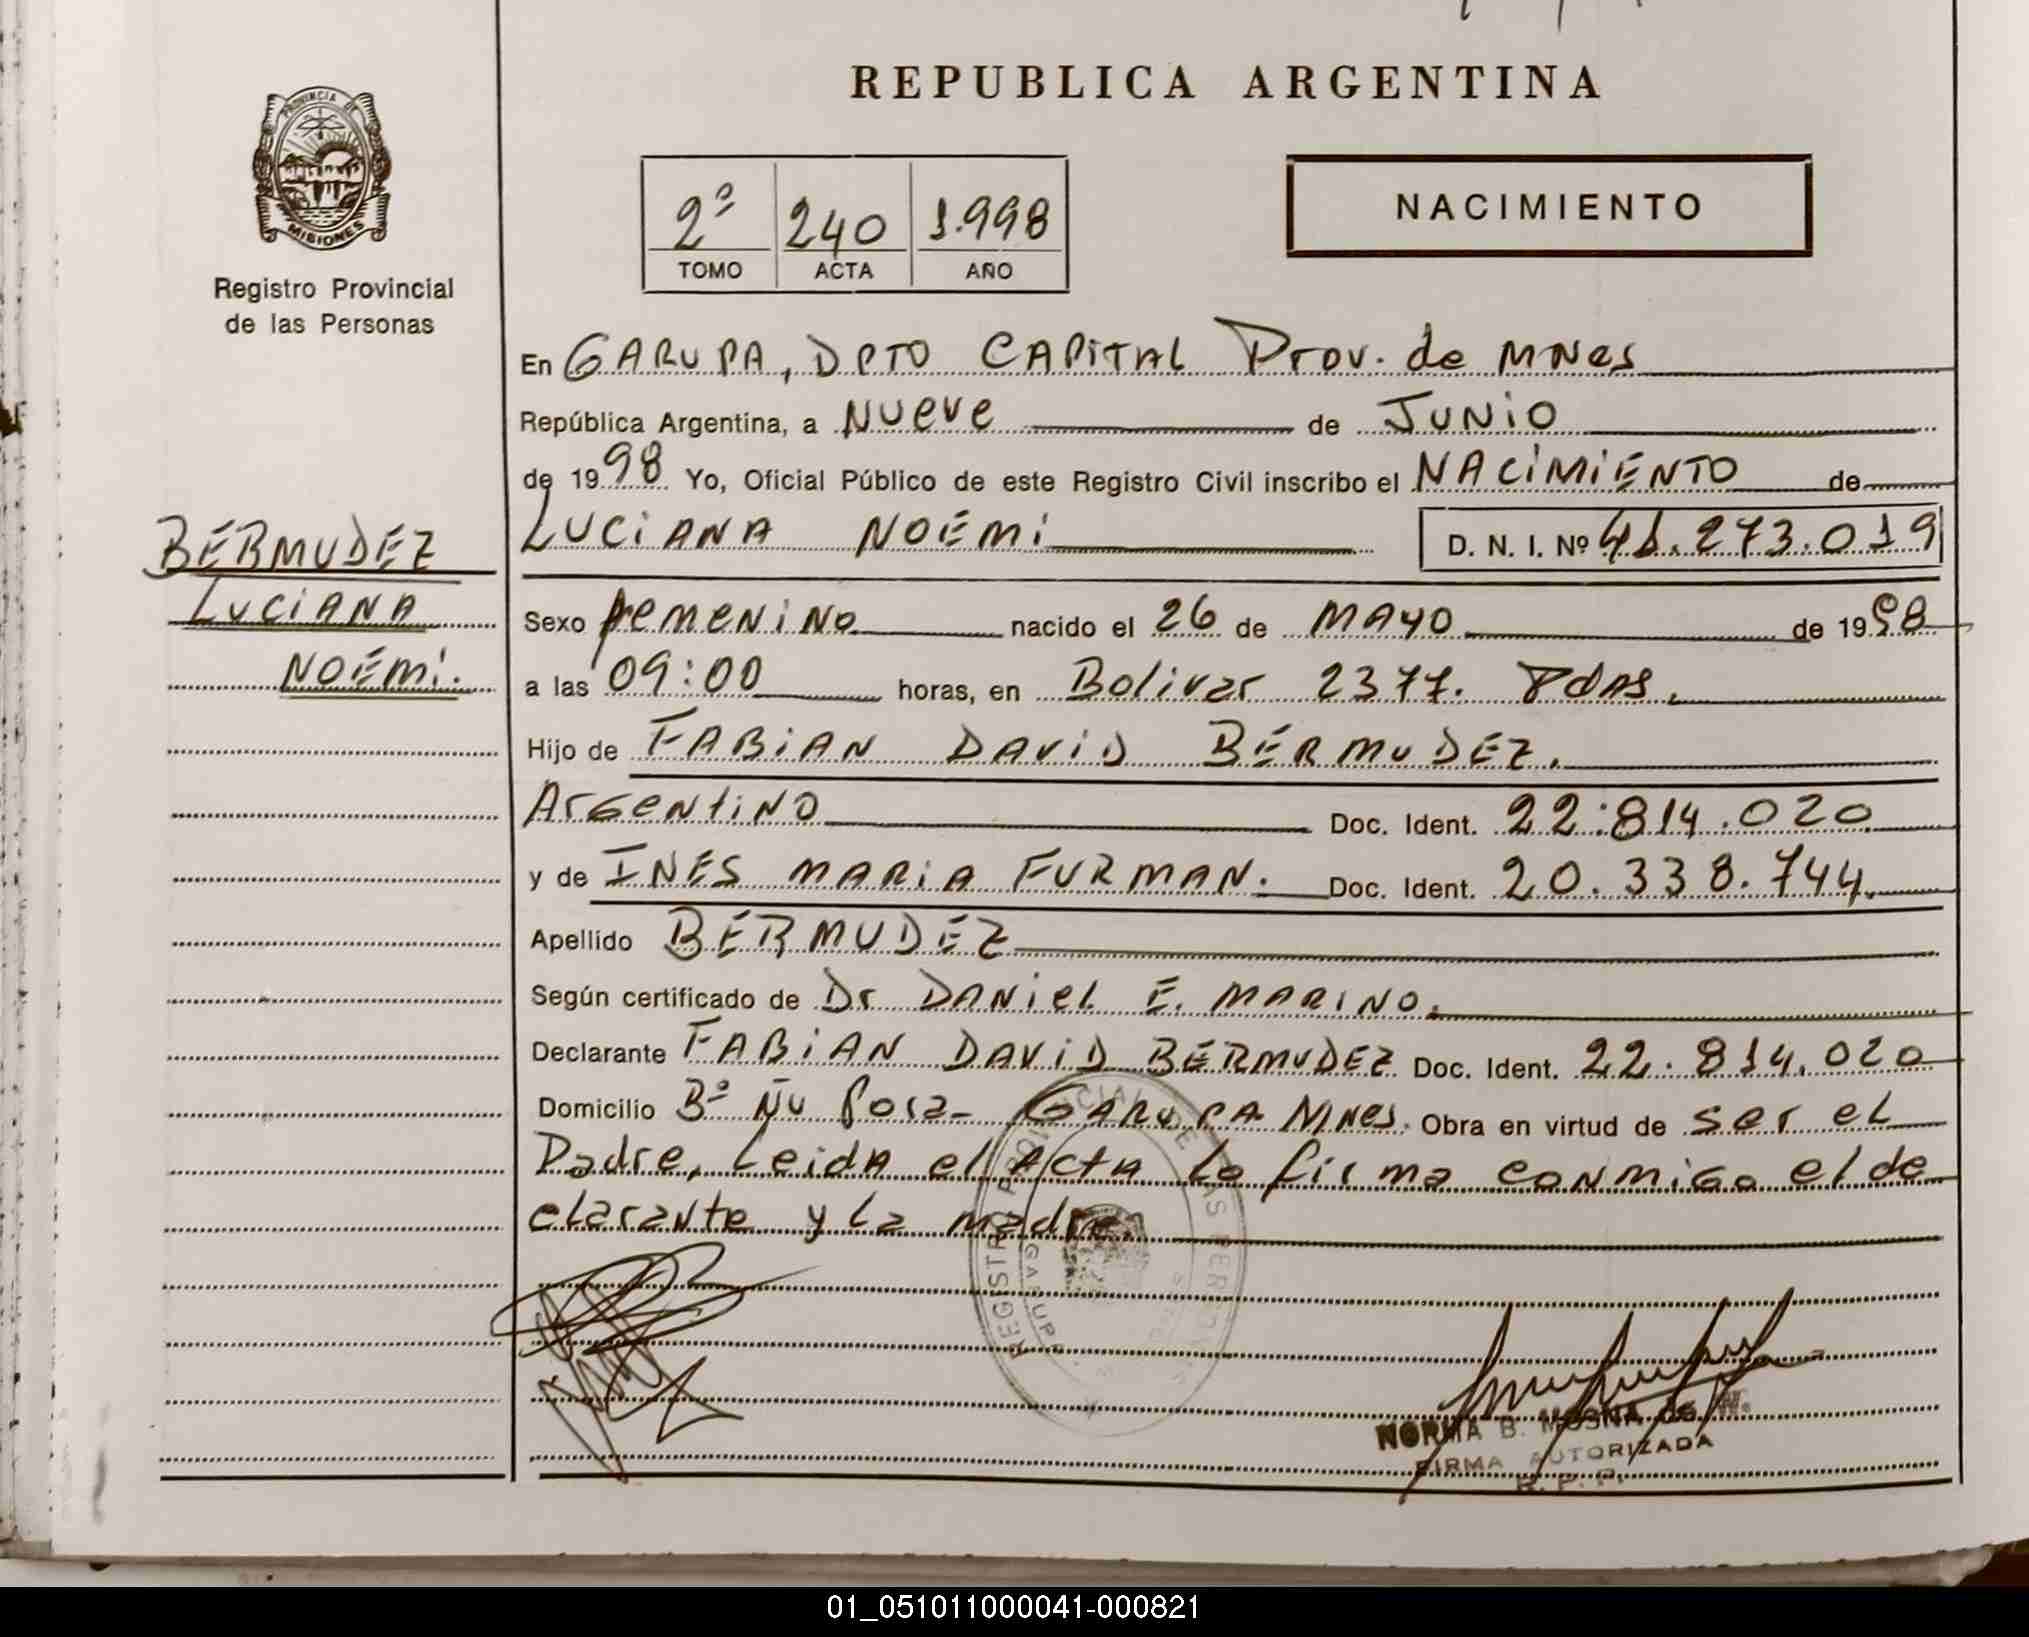 REPUBLICA ARGENTINA
PROVINCIA DE
MISIONES
Registro Provincial
de las Personas
2º 240 1.998
TOMO ACTA AÑO
NACIMIENTO
En GARUPA, DPTO CAPITAL Prov. de MNes
República Argentina, a NUEVE de JUNIO
de 1998 Yo, Oficial Público de este Registro Civil inscribo el NACIMIENTO de
LUCIANA NOEMI D. N. I. Nº 41.273.019
BERMUDEZ
LUCIANA
NOEMI.
Sexo femenino nacido el 26 de MAYO de 1998
a las 09:00 horas, en Bolivar 2377. Pdas.
Hijo de FABIAN DAVID BERMUDEZ.
Argentino Doc. Ident. 22.814.020
y de INES MARIA FURMAN. Doc. Ident. 20.338.744.
Apellido BERMUDEZ
Según certificado de Dr DANIEL E. MARINO.
Declarante FABIAN DAVID BERMUDEZ Doc. Ident. 22.814.020
Domicilio Bº Ñu Pora - GARUPA MNes. Obra en virtud de ser el
Padre, Leida el Acta la firma conmigo el de
clarante y la madre.
REGISTRO PROVINCIAL DE LAS PERSONAS
GARUPA
NORMA B. DE
FIRMA AUTORIZADA
R. P. P.
01_051011000041-000821